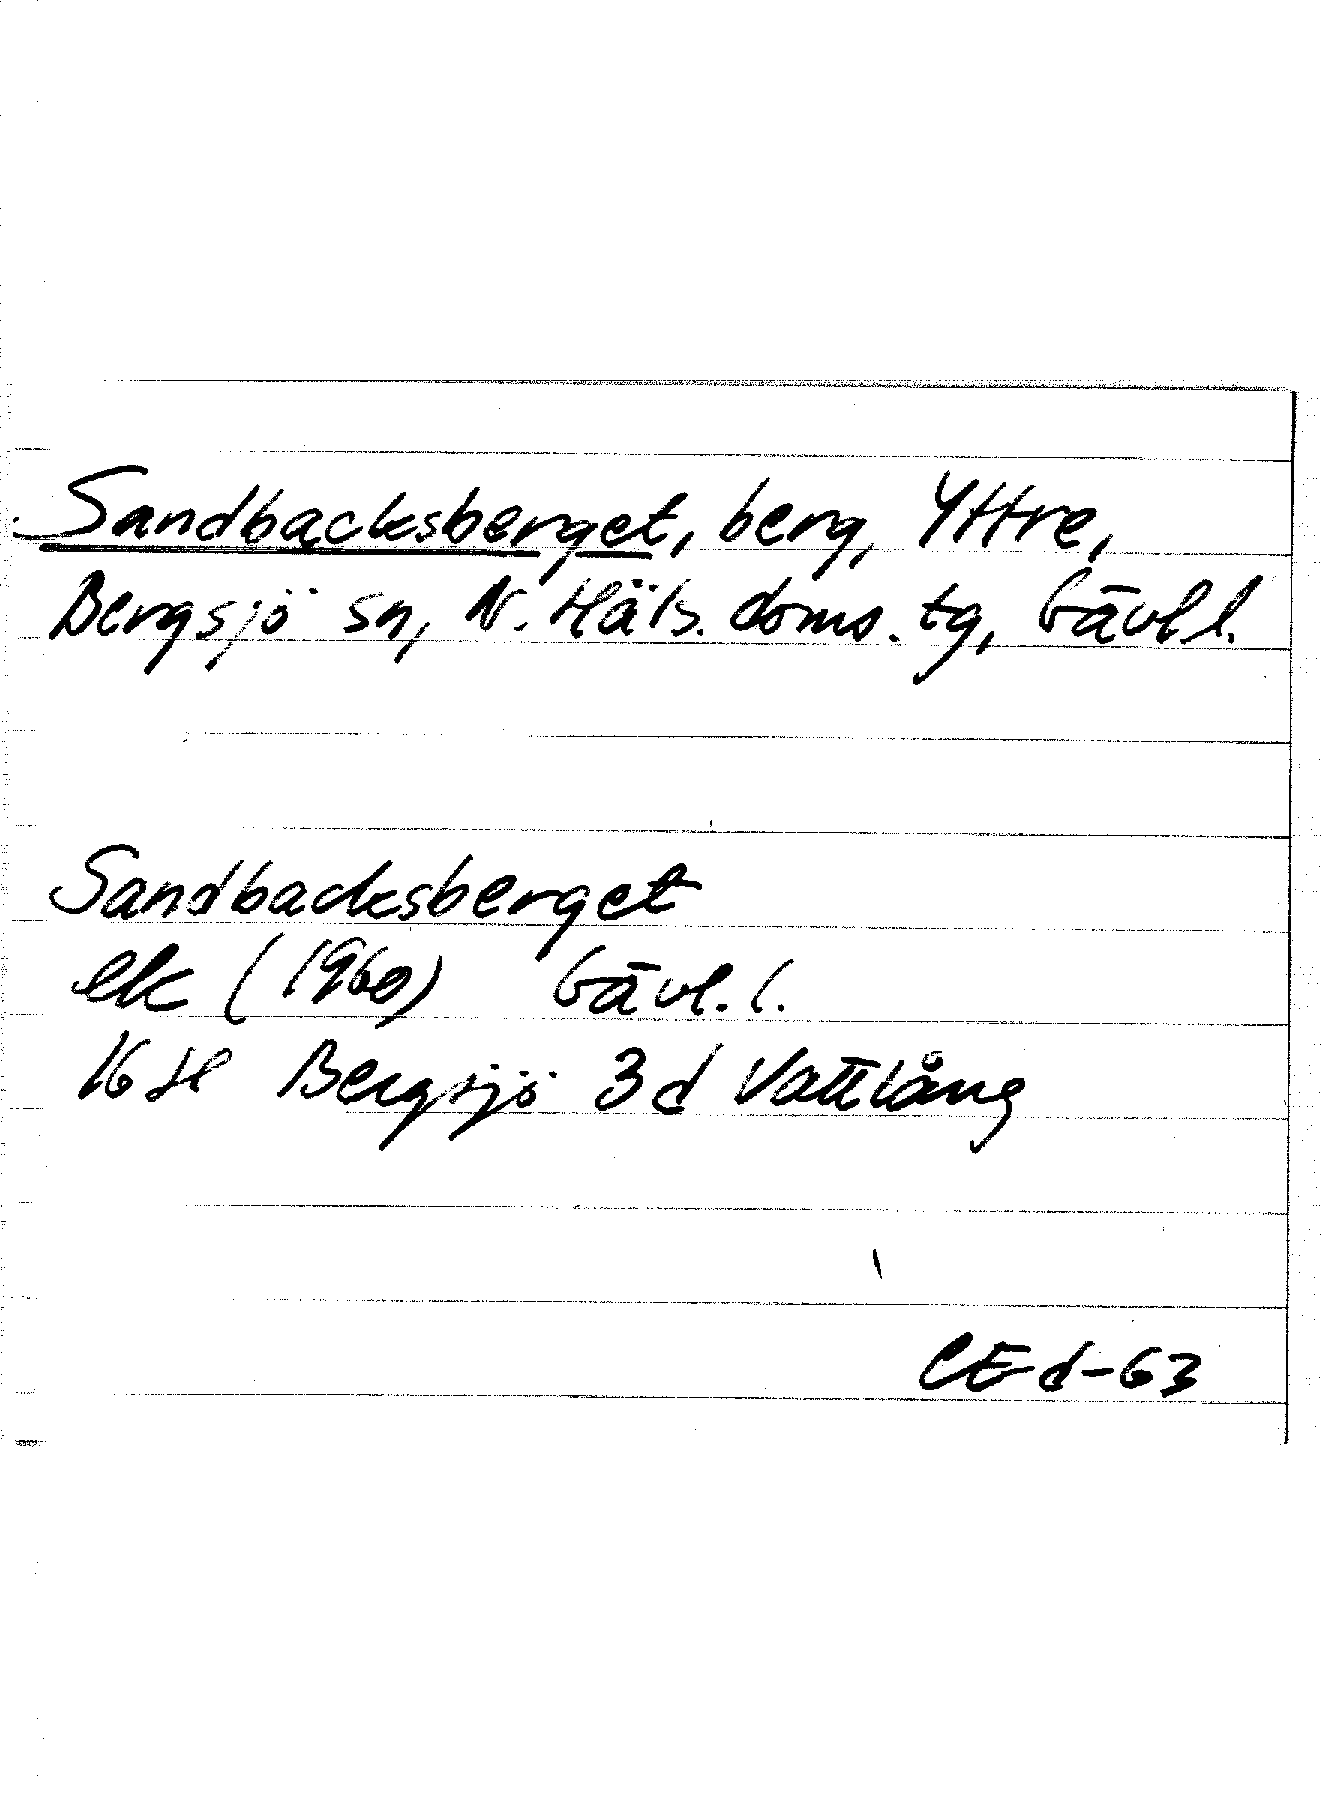 Sandbacksberget, berg, Yttre,
Bergsjö sn, N. Häls. doms. tg, Gävl l.
Sandbacksberget
ek (1960) Gävl. l.
16 H Bergsjö 3 d Vattlång
CE d-63